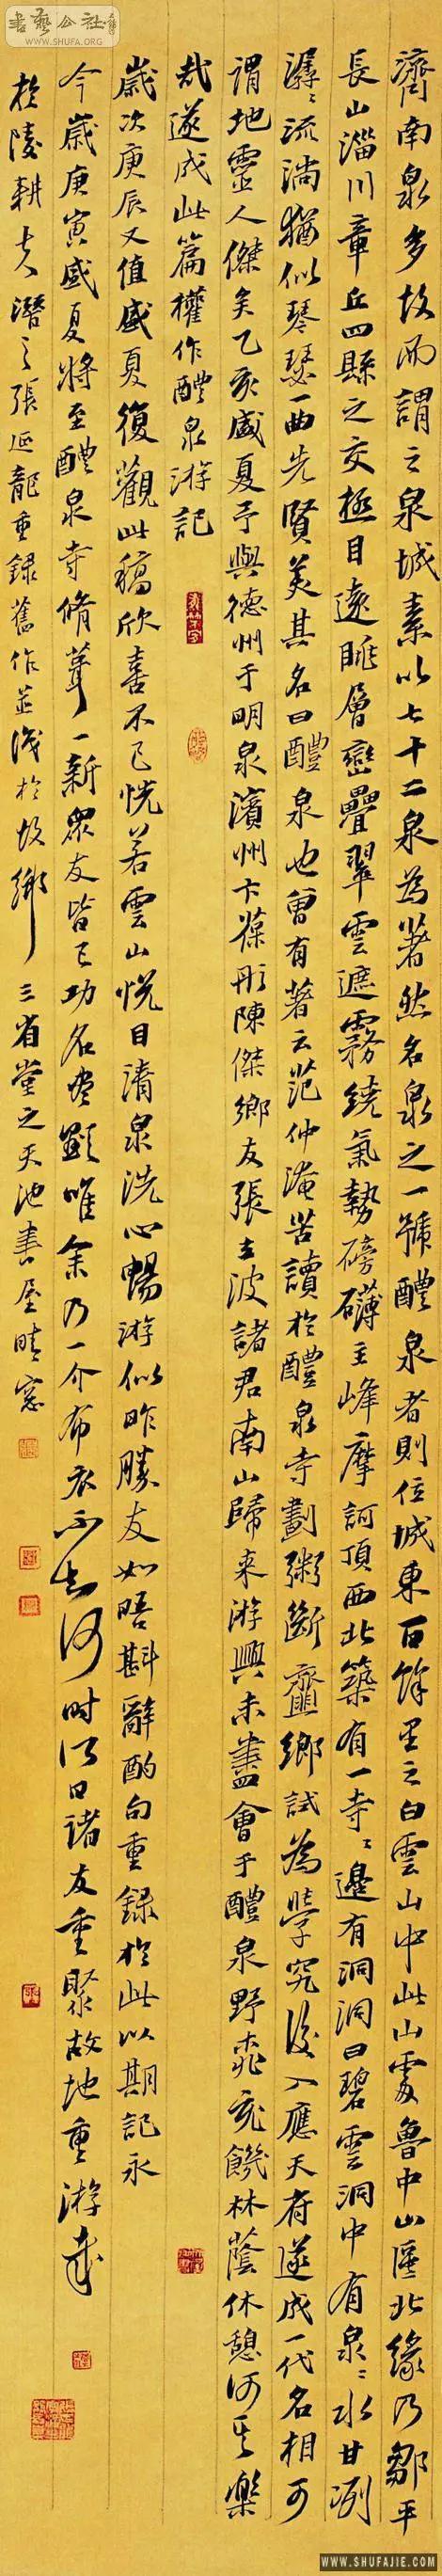 書藝公社
WWW.SHUFA.ORG
濟南泉多故而謂之泉城素以七十二泉為著然名泉之一號醴泉者則位城東百餘里之白雲山中此山處魯中山區北緣乃鄒平
長山淄川章丘四縣之交極目遠眺層巒疊翠雲遮霧繞氣勢磅礴主峰摩訶頂西北築有一寺〻邊有洞洞曰碧雲洞中有泉〻水甘冽
潺〻流淌猶似琴瑟一曲先賢美其名曰醴泉也曾有著云范仲淹苦讀於醴泉寺劃粥斷齏鄉試為學究後入應天府遂成一代名相可
謂地靈人傑矣乙亥盛夏予與德州于明泉濱州卞葆彤陳傑鄉友張立波諸君南山歸來游興未盡會于醴泉野蔬充饑林蔭休憩何其樂
哉遂成此篇權作醴泉游記
歲次庚辰又值盛夏復觀此稿欣喜不已恍若雲山悅目清泉洗心暢游似昨勝友如晤斟辭酌句重録於此以期記永
今歲庚寅盛夏將至醴泉寺脩葺一新眾友皆已功名晝顯唯余乃一介布衣不知何時何日諸友重聚故地重游哉
於陵耕夫潛之張延龍重録舊作並識於故鄉三省堂之天池書屋晴窓
WWW.SHUFAJIE.COM